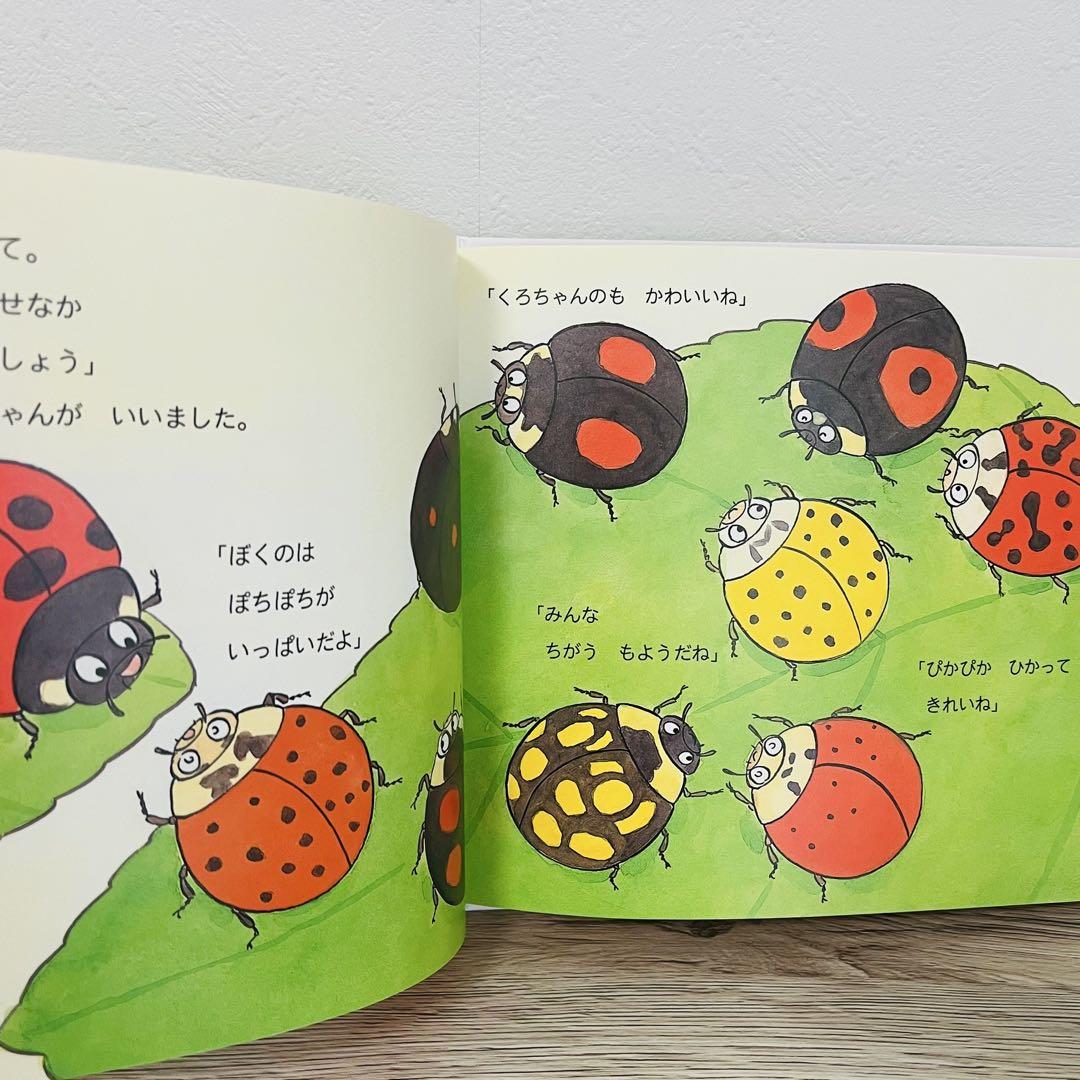 て。
せなか
しょう」
ゃんが　いいました。
「ぼくのは
ぽちぽちが
いっぱいだよ」
「くろちゃんのも　かわいいね」
「みんな
ちがう　もようだね」
「ぴかぴか　ひかって
きれいね」